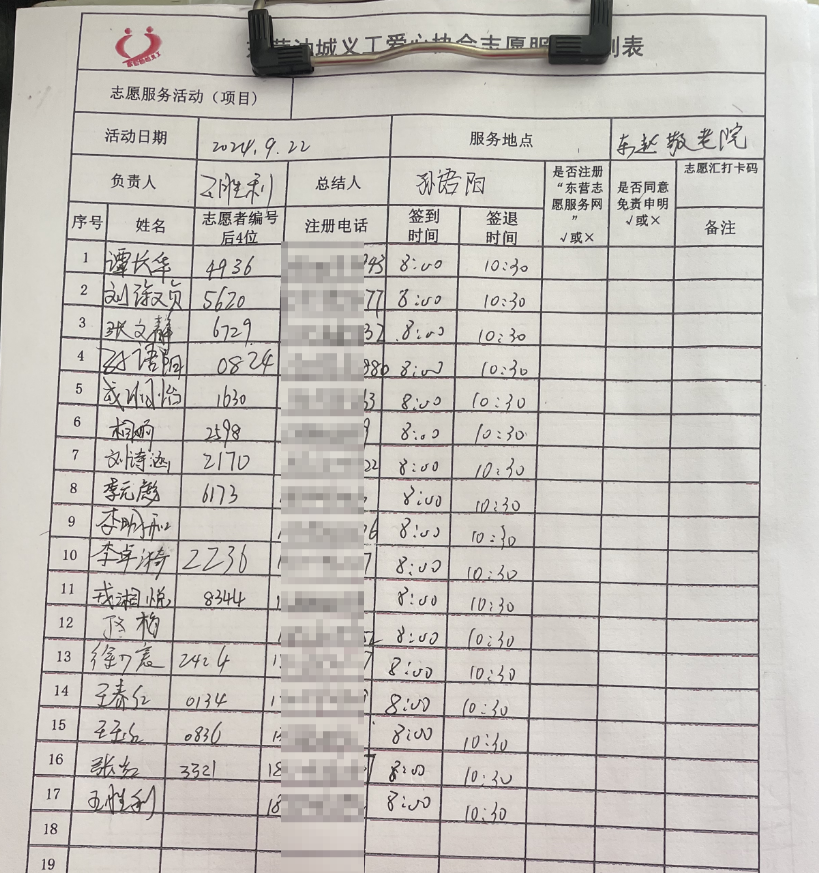 义工爱心协会志愿服
到表
志愿服务活动（项目）
活动日期 2024.9.22 服务地点 东赵敬老院
负责人 王胜利 总结人 孙语阳 是否注册“东营志愿服务网” √或× 是否同意免责申明 √或× 志愿汇打卡码
序号 姓名 志愿者编号后4位 注册电话 签到时间 签退时间 备注
1 谭长华 4936 943 8:00 10:30
2 5620 77 8:00 10:30
3 张文静 6729 32 8:00 10:30
4 孙语阳 0824 980 8:00 10:30
5 1630 63 8:00 10:30
6 2598 9 8:00 10:30
7 刘诗涵 2170 22 8:00 10:30
8 6173 8:00 10:30
9 6 8:00 10:30
10 李卓漪 2236 7 8:00 10:30
11 戎湘悦 8344 8:00 10:30
12 8:00 10:30
13 2424 7 8:00 10:30
14 王春红 0134 8:00 10:30
15 0836 8:00 10:30
16 3321 18 7 8:00 10:30
17 王胜利 18 8:00 10:30
18
19